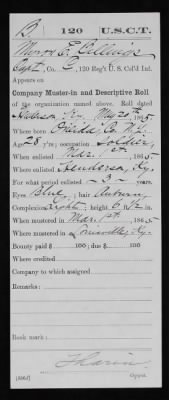 B | 120 | U.S.C.T.
Capt, Co. C, 120 Reg't U. S. Col'd Inf.
Appears on
Company Muster-in and Descriptive Roll
of the organization named above. Roll dated
May 20, 1865.
Where born Oneida Co. N.Y.
Age 28 y'rs; occupation Soldier
When enlisted Mar. 1st, 1865.
Where enlisted Henderson, Ky.
For what period enlisted 3 years.
Eyes Blue; hair Auburn
Complexion Light; height 6 ft. in.
When mustered in Mar. 1st, 1865
Where mustered in Louisville, Ky.
Bounty paid $ 100; due $ 100
Where credited
Company to which assigned
Remarks:
Book mark:
Copyist.